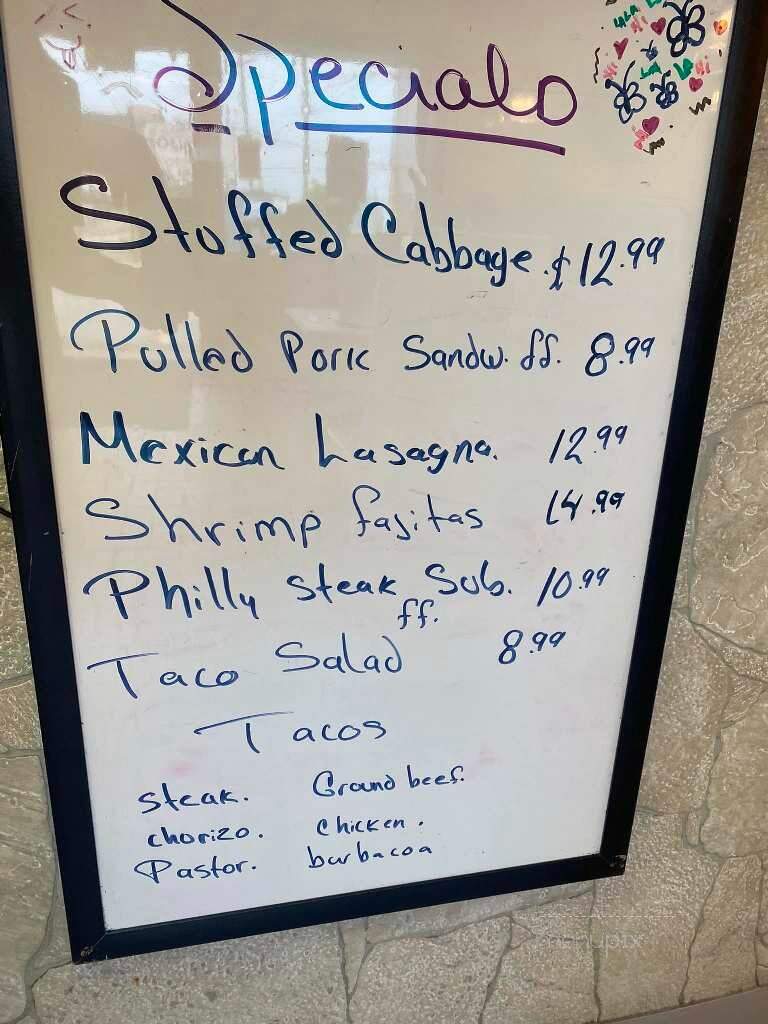 Specials
Stuffed Cabbage. $12.99
Pulled Pork Sandw. ff. 8.99
Mexican Lasagna. 12.99
Shrimp fajitas 14.99
Philly Steak Sub. 10.99
ff.
Taco Salad 8.99
Tacos
steak. Ground beef.
chorizo. chicken.
Pastor. barbacoa
menupix